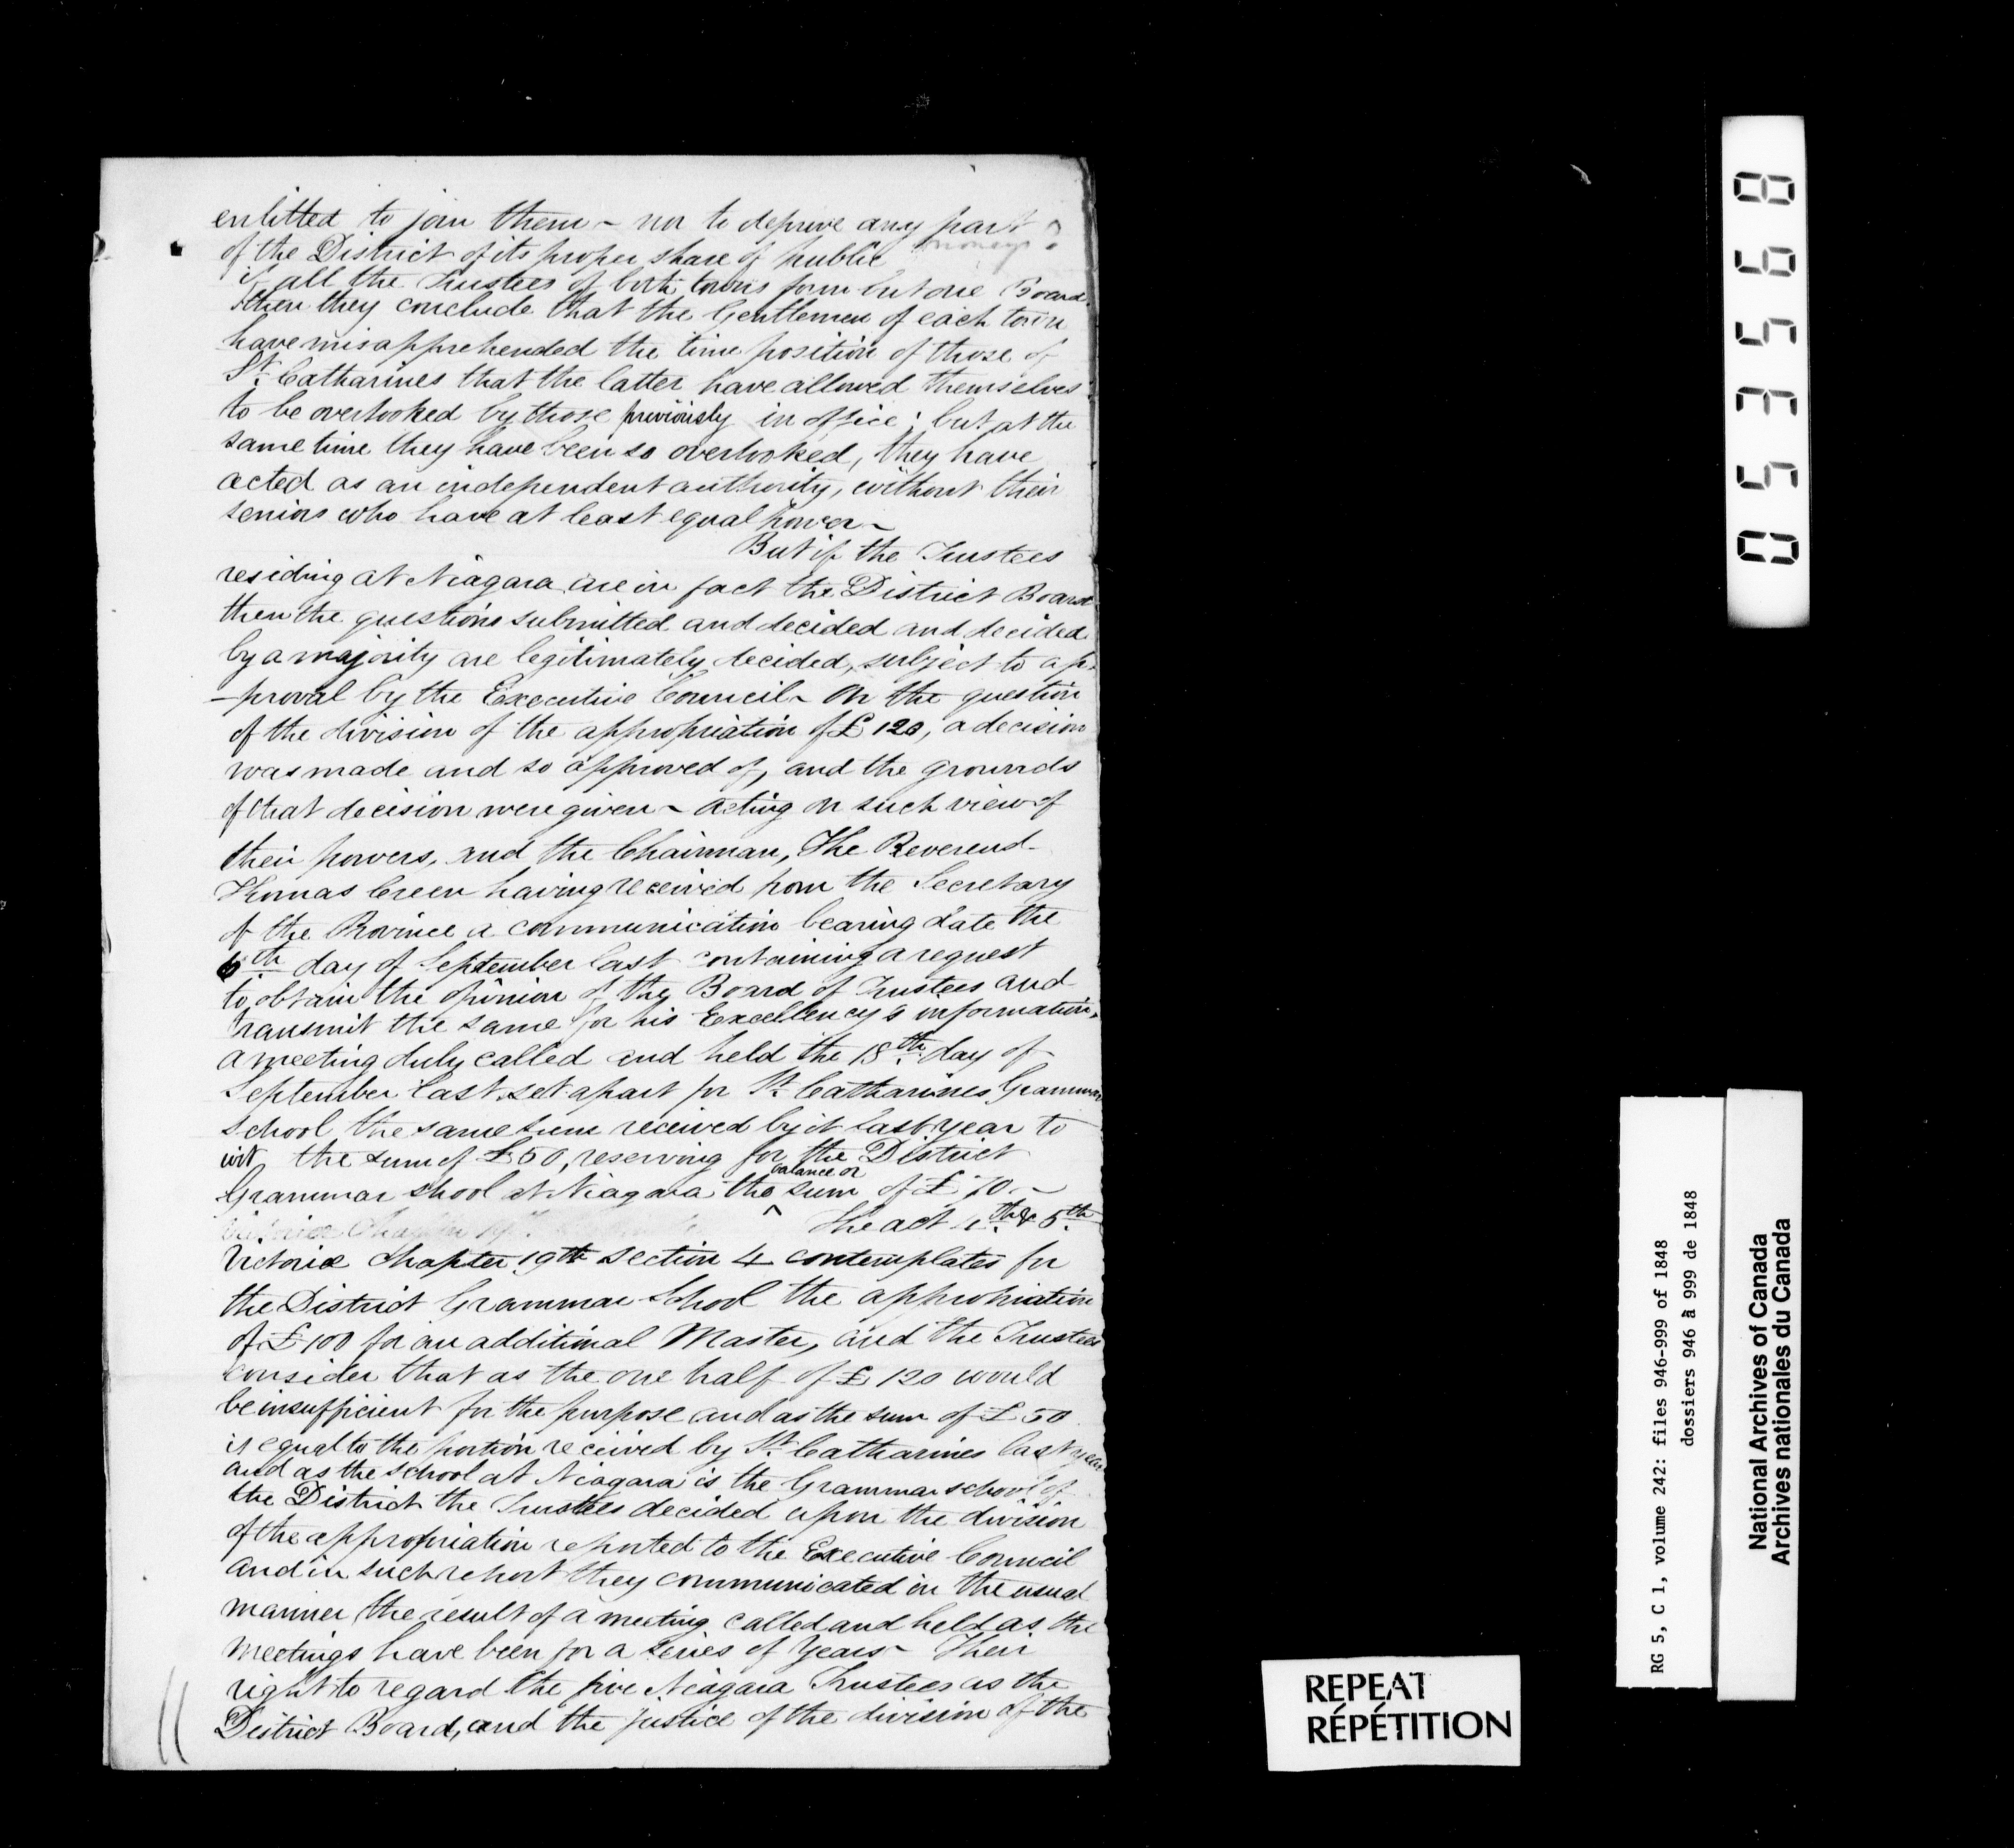 enlitted to join them ~ nor to deprive any part
of the District of its proper share of public moneys
if all the Trustees of both towns form but one Board
then they conclude that the Gentlemen of each town
have misapprehended the time position of those of
St. Catharines that the latter have allowed themselves
to be overlooked by those previously in office; but at the
same time they have been so overlooked, they have
acted as an independent authority, without their
seniors who have at least equal power ~
But if the Trustees
residing at Niagara are in fact the District Board
then the questions submitted and decided and decided
by a majority are legitimately decided, subject to ap-
-proval by the Executive Council ~ On the question
of the division of the appropriation of £120, a decision
was made and so approved of, and the grounds
of that decision were given ~ acting on such view of
their powers, and the Chairman, The Reverend
Thomas Creen having received from the Secretary
of the Province a communication bearing date the
6th day of September last containing a request
to obtain the opinion of the Board of Trustees and
transmit the same for his Excellency's information,
a meeting duly called and held the 18th day of
September last set apart for St. Catharines Grammar
school the same sum received by it last year to
wit the sum of £50, reserving for the District
Grammar shool at Niagara the ^ balance or sum of £70. ~
Victoria Chapter 19. The act 4th & 5th
Victoria Chapter 19th section 4 contemplates for
the District Grammar School the appropriation
of £100 for an additional Master, and the Trustees
consider that as the one half of £120 would
be insufficient for the purpose and as the sum of £50
is equal to the portion received by St. Catharines last year
and as the school at Niagara is the Grammar school of
the District the Trustees decided upon the division
of the appropriation reported to the Executive Council
and in such report they communicated in the usual
manner the result of a meeting called and held as the
meetings have been for a series of years ~ Their
right to regard the five Niagara Trustees as the
District Board, and the justice of the division of the
053568
RG 5, C 1, volume 242: files 946-999 of 1848
dossiers 946 à 999 de 1848
National Archives of Canada
Archives nationales du Canada
REPEAT
RÉPÉTITION